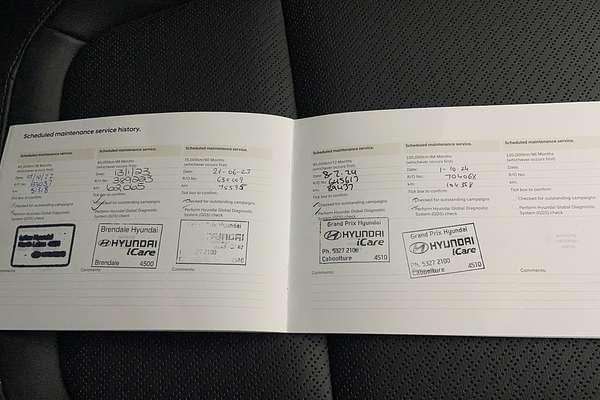 Scheduled maintenance service history.
Scheduled maintenance service.
(whichever occurs first)
Date:
R/O No:
km:
Tick box to confirm:
Checked for outstanding campaigns
Perform Hyundai Global Diagnostic
System (GDS) check
Comments:
Scheduled maintenance service.
(whichever occurs first)
Date: 13/1/23
R/O No:
km: 62065
Tick box to confirm:
Checked for outstanding campaigns
Perform Hyundai Global Diagnostic
System (GDS) check
Brendale Hyundai
HYUNDAI
iCare
Brendale 4500
Comments:
Scheduled maintenance service.
(whichever occurs first)
Date: 21-06-23
R/O No:
km: 75575
Tick box to confirm:
Checked for outstanding campaigns
Perform Hyundai Global Diagnostic
System (GDS) check
HYUNDAI
Comments:
Scheduled maintenance service.
(whichever occurs first)
Date: 8-2-24
R/O No: 645617
km: 89437
Tick box to confirm:
Checked for outstanding campaigns
Perform Hyundai Global Diagnostic
System (GDS) check
Grand Prix Hyundai
HYUNDAI
iCare
Ph. 5327 2100
Caboolture 4510
Comments:
Scheduled maintenance service.
(whichever occurs first)
Date: 1-10-24
R/O No:
km: 104358
Tick box to confirm:
Checked for outstanding campaigns
Perform Hyundai Global Diagnostic
System (GDS) check
Grand Prix Hyundai
HYUNDAI
iCare
Ph. 5327 2100
Caboolture 4510
Scheduled maintenance service.
(whichever occurs first)
Date:
R/O No:
km:
Tick box to confirm:
Checked for outstanding campaigns
Perform Hyundai Global Diagnostic
System (GDS) check
Comments: